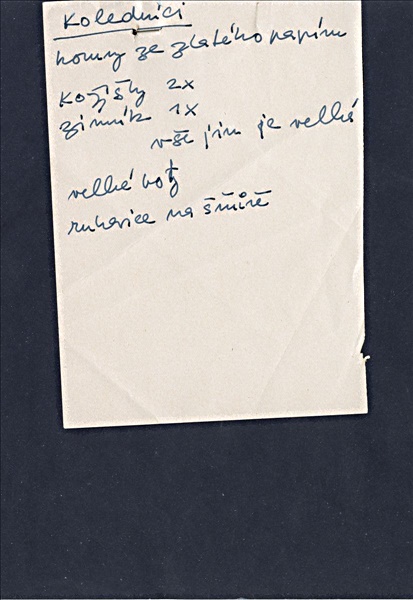 Koledníci
koruny ze zlatého papíru
kožíšky 2x
zimník 1x
vše jim je velké
velké boty
rukavice na šňůře